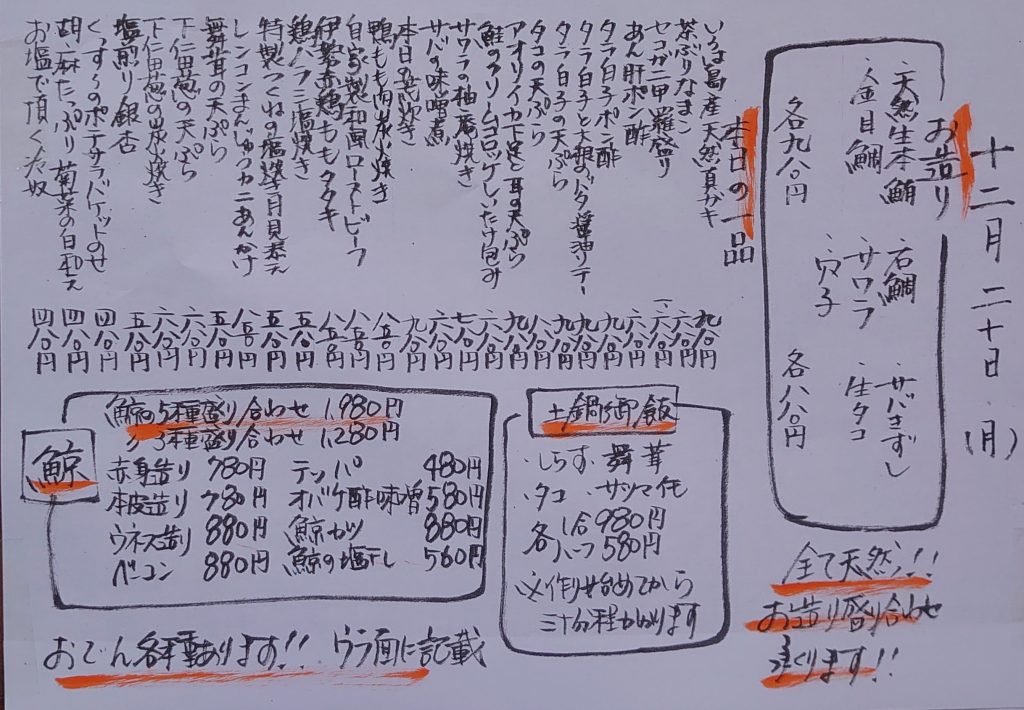 十二月二十日(月)
お造り
・天然生本鮪
・金目鯛
各九八〇円
・石鯛
・サワラ
・穴子
・サバきずし
・生タコ
各八八〇円
全て天然!!
お造り盛り合わせ
承ります!!
本日の一品
いろは島産天然真ガキ
茶ぶりなまこ
セコガニ甲羅盛り
あん肝ポン酢
タラ白子ポン酢
タラ白子と大根のバター醤油ソテー
タラ白子の天ぷら
タコの天ぷら
アオリイカ下足と耳の天ぷら
鮭のクリームコロッケしいたけ包み
サワラの柚庵焼き
サバの味噌煮
本日の荒炊き
鴨もも肉炭火焼き
自家製和風ローストビーフ
伊勢赤鶏ももタタキ
鶏ハラミ塩焼き
特製つくねの塩焼き月見添え
レンコンまんじゅうカニあんかけ
舞茸の天ぷら
下仁田葱の天ぷら
下仁田葱の炭火焼き
塩煎り銀杏
くんすうのポテサラバゲットのせ
胡麻たっぷり菊菜の白和え
お塩で頂くたぬ奴
土鍋御飯
・しらす・舞茸
・タコ・サツマイモ
各一合980円
各ハーフ580円
※作り始めてから
三十分程かかります
鯨
鯨の5種盛り合わせ 1,980円
〃3種盛り合わせ 1,280円
赤身造り 780円 テッパ 480円
本皮造り 780円 オバケ酢味噌 580円
ウネス造り 880円 鯨カツ 880円
ベーコン 880円 鯨の塩干し 560円
おでん各種あります!! ウラ面に記載